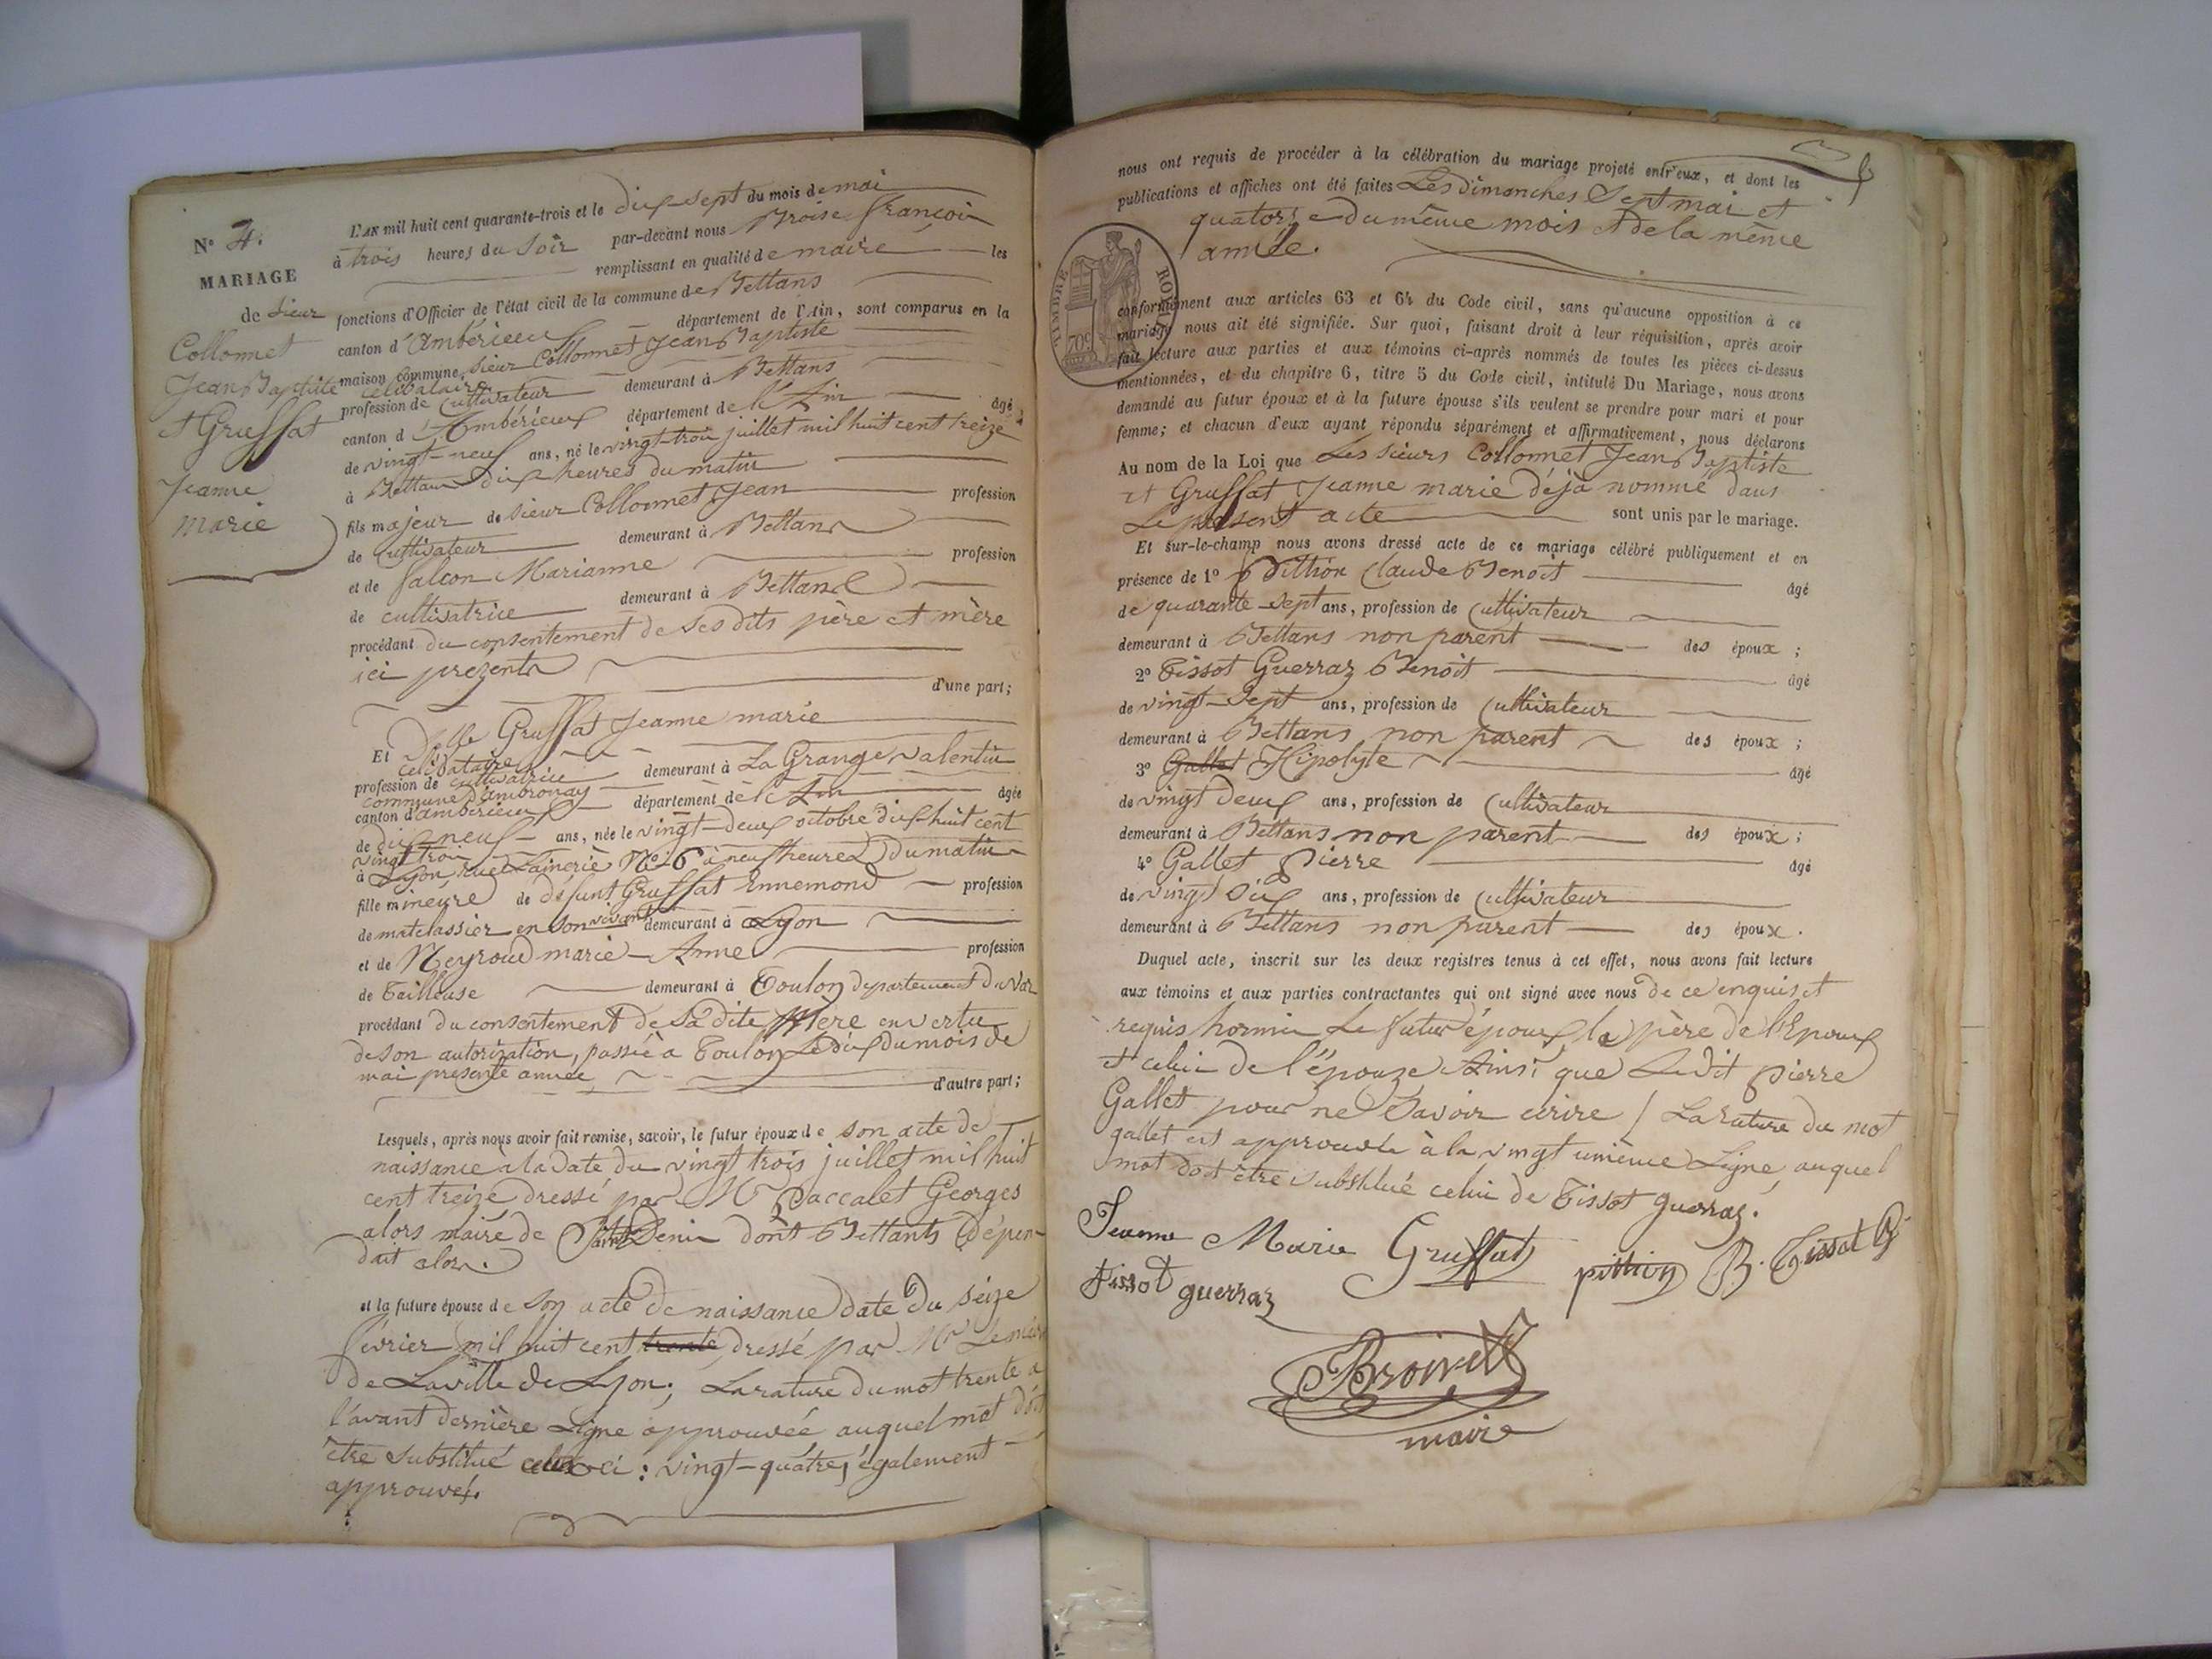 N° 4.
MARIAGE
de Sieur
Collonnet
Jean Baptiste
et Gruffat
Jeanne
marie
L'AN mil huit cent quarante-trois et le dix-sept du mois de mai
à trois heures du soir par-devant nous Broise françois
remplissant en qualité de maire les
fonctions d'Officier de l'état civil de la commune de Bettans
canton d'ambérieux département de l'Ain, sont comparus en la
maison commune, sieur Collonnet Jean Baptiste
célibataire
profession de cultivateur demeurant à Bettans
canton d'Ambérieux département de l'Ain âgé
de vingt-neuf ans, né le vingt-trois juillet mil huit cent treize
à Bettans dix heures du matin
fils majeur de sieur Collonnet Jean profession
de cultivateur demeurant à Bettans
et de falcon Marianne profession
de cultivatrice demeurant à Bettans
procédant du consentement de ses dits père et mère
ici prezents
d'une part;
Et Dlle Gruffat Jeanne marie
célibataire
profession de cultivatrice demeurant à La Grange valentin
commune d'ambronay
canton d'ambérieux département de l'Ain âgée
de dix neuf ans, née le vingt-deux octobre dix huit cent
vingt trois
à Lyon, rue Lainerie N° 26 à neuf heures du matin
fille mineure de défunt Gruffat Ennemond profession
de matelassier en son vivant demeurant à Lyon
et de Neyroud marie-Anne profession
de tailleuse demeurant à Toulon departement du Var
procédant du consentement de sa dite Mère en vertu
de son autorization, passée à Toulon le dix du mois de
mai presente année
d'autre part;
Lesquels, après nous avoir fait remise, savoir, le futur époux de son acte de
naissance à la date du vingt trois juillet mil huit
cent treize dressé par Mr Paccalet Georges
alors maire de Saint Denis dont Bettants dépen-
dait alors.
et la future épouse de son acte de naissance date du seize
février mil huit cent trente, dressé par Mr Le maire
de La ville de Lyon; La rature du mot trente a
l'avant dernière Ligne approuvée auquel mot doit
être substitué celui ci: vingt-quatre, également
approuvé.
nous ont requis de procéder à la célébration du mariage projeté entr'eux, et dont les
publications et affiches ont été faites Les dimanches Sept mai et
quatorze du même mois et de la même
année.
TIMBRE ROYAL
conformément aux articles 63 et 64 du Code civil, sans qu'aucune opposition à ce
mariage nous ait été signifiée. Sur quoi, faisant droit à leur réquisition, après avoir
fait lecture aux parties et aux témoins ci-après nommés de toutes les pièces ci-dessus
mentionnées, et du chapitre 6, titre 5 du Code civil, intitulé Du Mariage, nous avons
demandé au futur époux et à la future épouse s'ils veulent se prendre pour mari et pour
femme; et chacun d'eux ayant répondu séparément et affirmativement, nous déclarons
Au nom de la Loi que Les sieurs Collonnet Jean Baptiste
et Gruffat Jeanne marie déjà nommé dans
Le présent acte sont unis par le mariage.
Et sur-le-champ nous avons dressé acte de ce mariage célébré publiquement et en
présence de 1° Pittion Claude Benoit âgé
de quarante-sept ans, profession de Cultivateur
demeurant à Bettans non parent des époux;
2° Tissot Guerraz Benoit âgé
de vingt-sept ans, profession de Cultivateur
demeurant à Bettans non parent des époux;
3° Gallet Hipolyte âgé
de vingt deux ans, profession de Cultivateur
demeurant à Bettans non parent des époux;
4° Gallet Pierre âgé
de vingt six ans, profession de Cultivateur
demeurant à Bettans non parent des époux.
Duquel acte, inscrit sur les deux registres tenus à cet effet, nous avons fait lecture
aux témoins et aux parties contractantes qui ont signé avec nous de ce enquis et
requis hormis Le futur époux, le père de l'Epoux
et celui de l'épouze Ainsi que Ledit pierre
Gallet pour ne Savoir écrire / La rature du mot
gallet est approuvée à la vingt unième Ligne, auquel
mot doit être substitué celui de Tissot guerraz.
Jeanne Marie Gruffat pittion B. Tissot G
tissot guerraz
Broise
maire